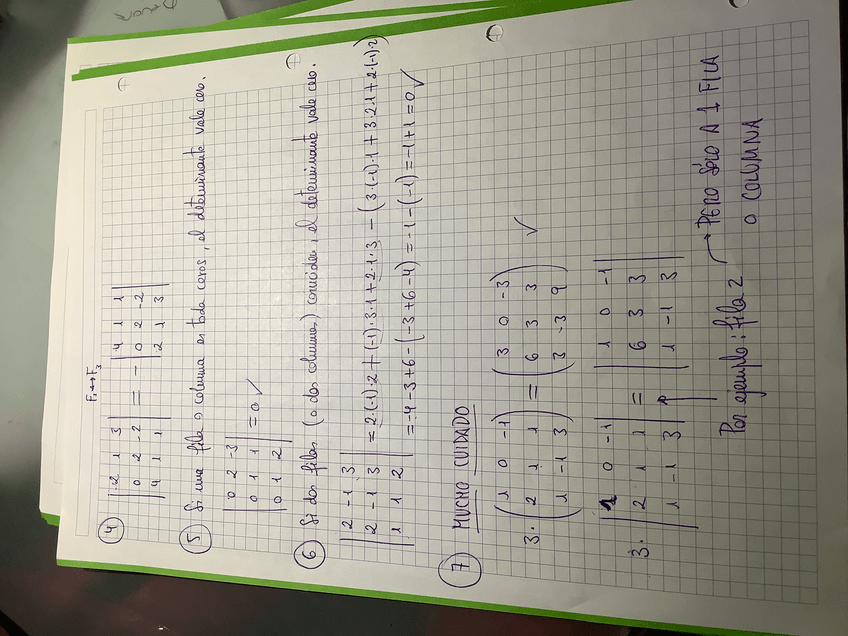 F₁↔F₃
④ |2 1 3| = − |4 1 1|
|0 2 -2| |0 2 -2|
|4 1 1| |2 1 3|
⑤ Si una fila o columna es toda ceros, el determinante vale cero.
|0 2 -3|
|0 1 1| = 0 ✓
|0 1 2|
⑥ Si dos filas (o dos columnas) coinciden, el determinante vale cero.
|2 -1 3|
|2 -1 3| = 2·(-1)·2 + (-1)·3·1 + 2·1·3 − (3·(-1)·1 + 3·2·1 + 2·(-1)·2)
|1 1 2| = -4 -3 +6 -(-3+6-4) = -1 -(-1) = -1+1 = 0 ✓
⑦ MUCHO CUIDADO
(1 0 -1) (3 0 -3)
3· (2 1 1) = (6 3 3) ✓
(1 -1 3) (3 -3 9)
|1 0 -1| |1 0 -1|
3· |2 1 1| = |6 3 3|
|1 -1 3| |1 -1 3|
Por ejemplo: fila 2
→ PERO SÓLO A 1 FILA
O COLUMNA